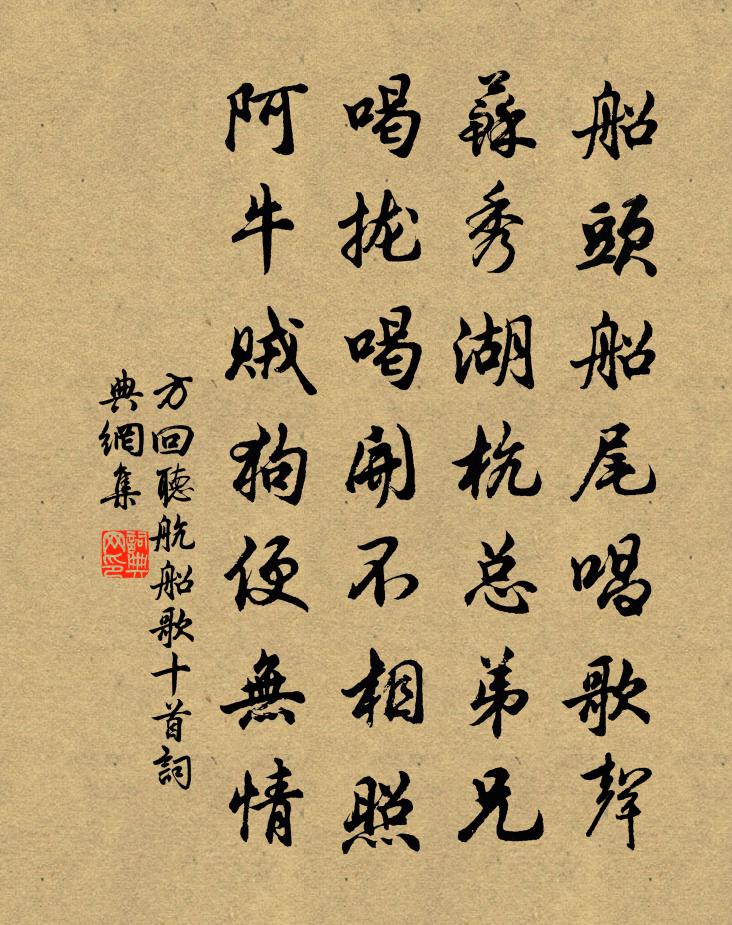 船頭船尾唱歌聲
蘇秀湖杭總弟兄
喝拢喝開不相照
阿牛賊狗便無情
方回聽航船歌十首詞
典網集
詞典
网印